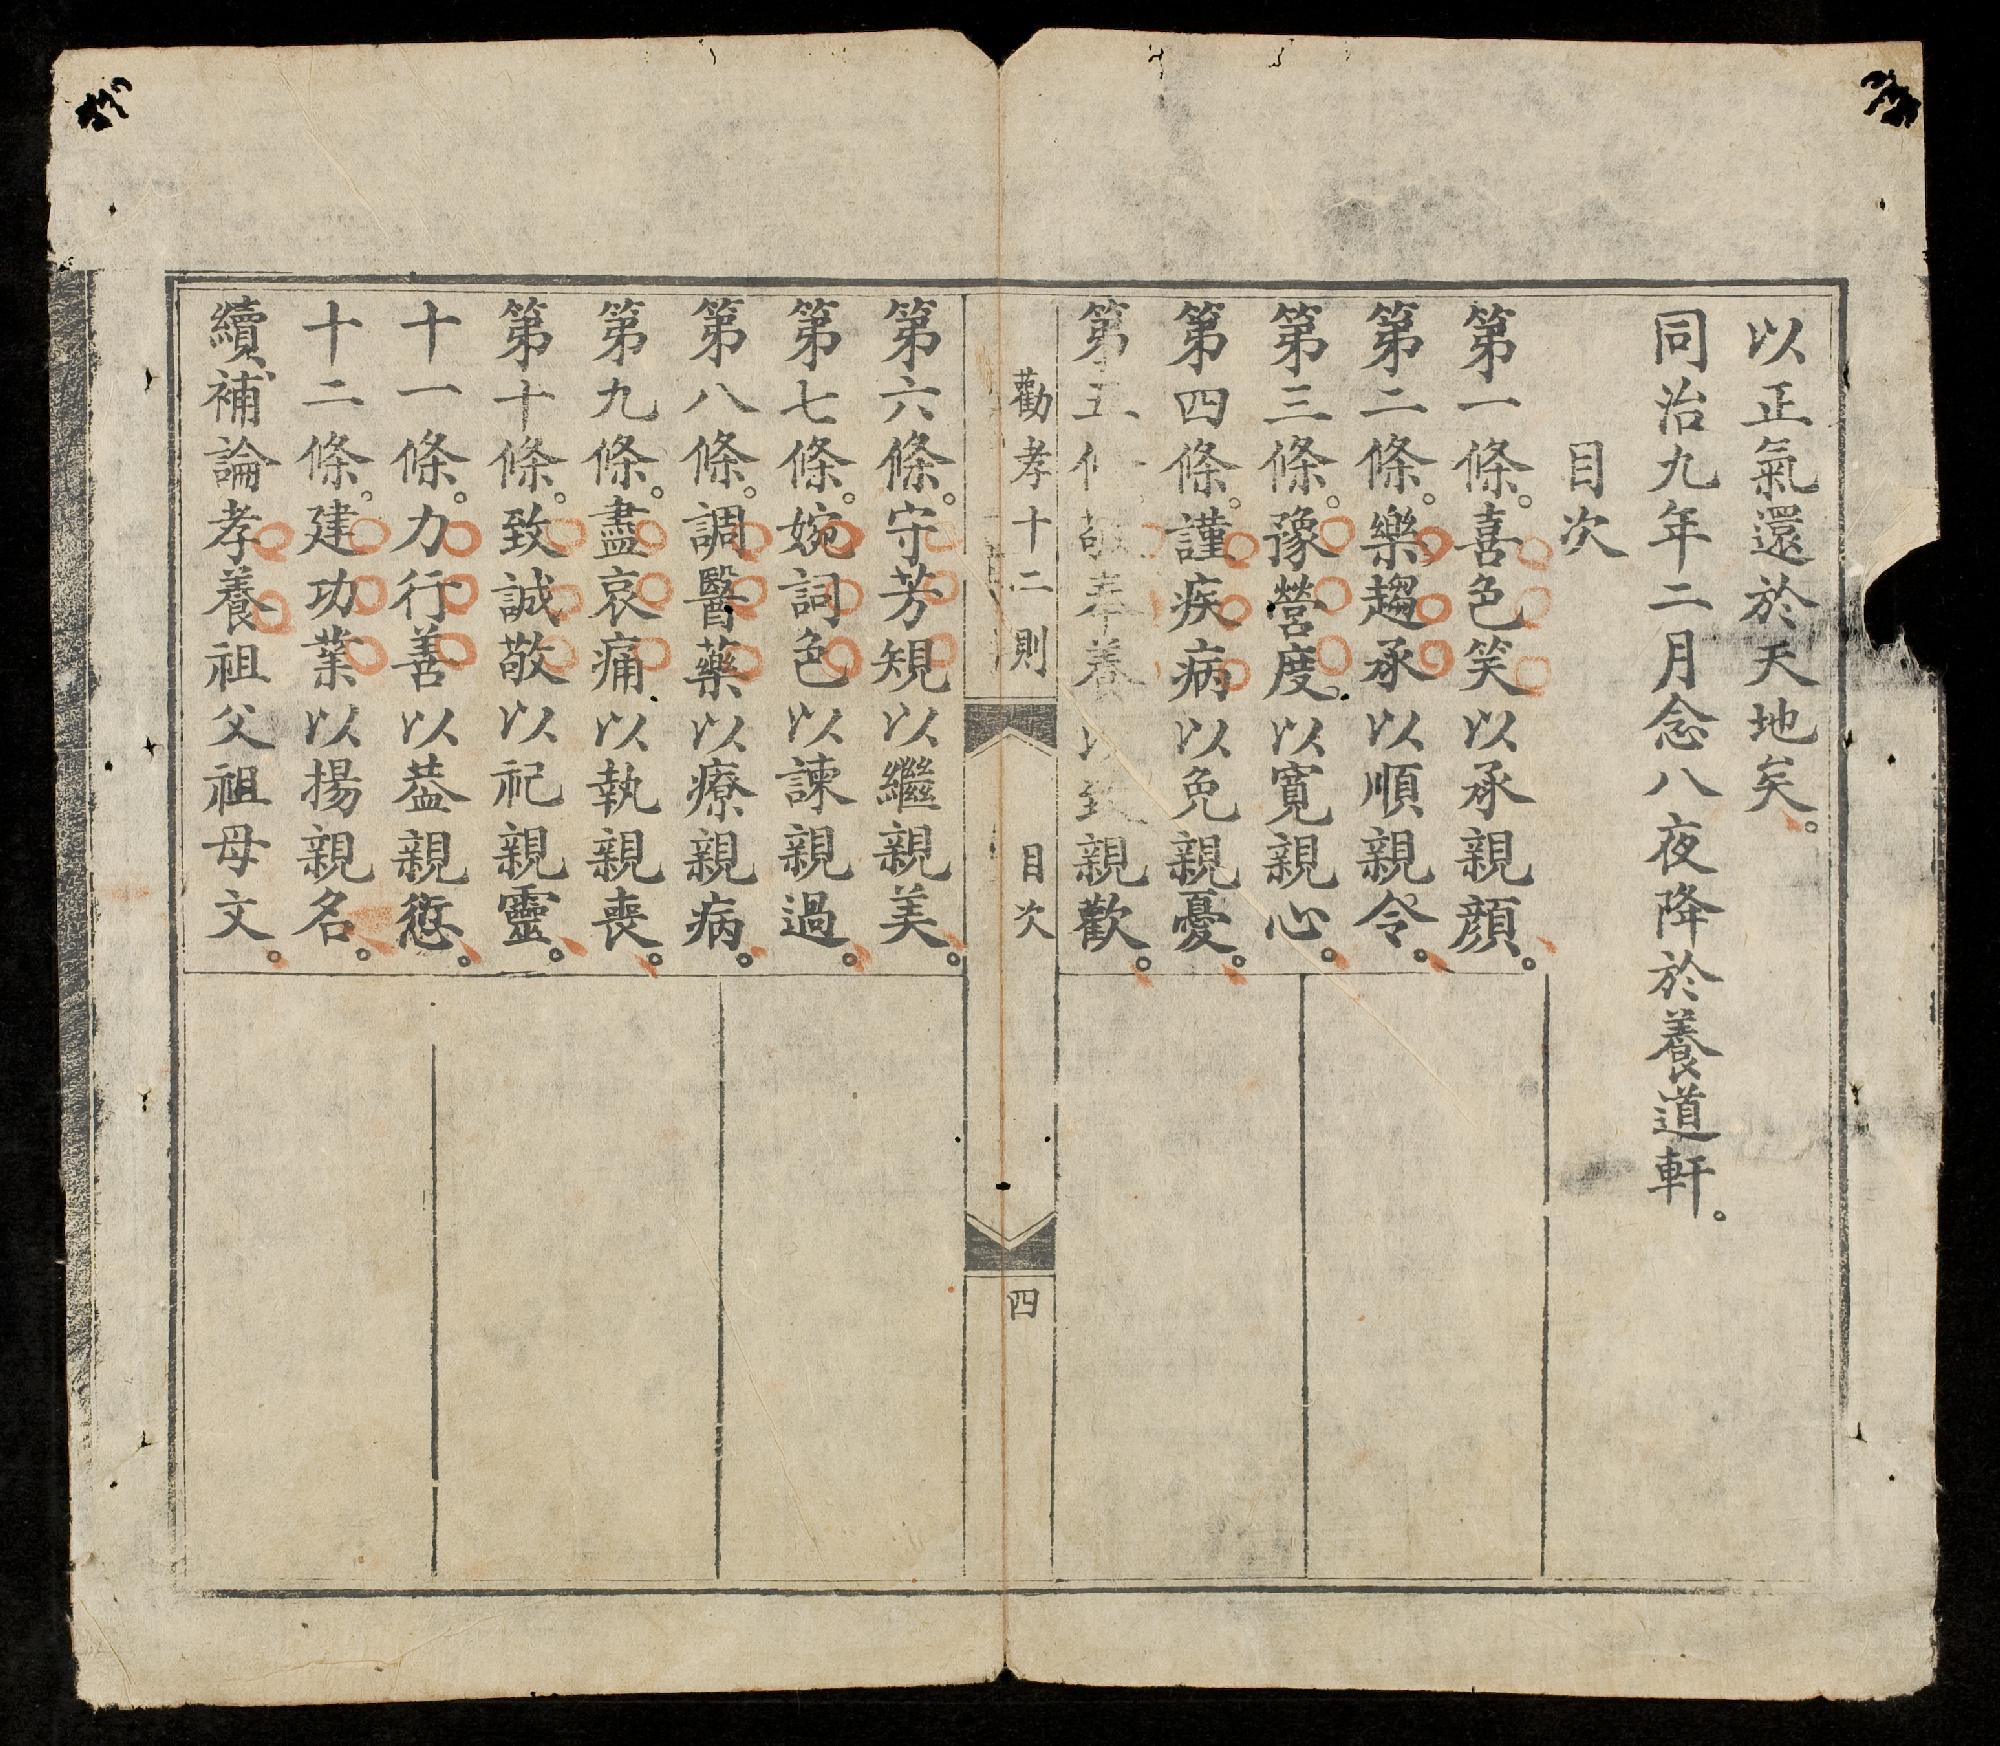 以正氣還於天地矣。
同治九年二月念八夜降於養道軒。
目次
第一條。喜色笑以承親顏。
第二條。樂趨承以順親令。
第三條。豫營度。以寬親心。
第四條。謹疾病以免親憂。
第五條敬奉養以致親歡。
勸孝十二則
目次
四
第六條。守芳規以繼親美。
第七條。婉詞色以諫親過。
第八條。調醫藥以療親病。
第九條。盡哀痛以執親喪。
第十條。致誠敬以祀親靈。
十一條。力行善以葢親愆。
十二條。建功業以揚親名。
續補論孝養祖父祖母文。